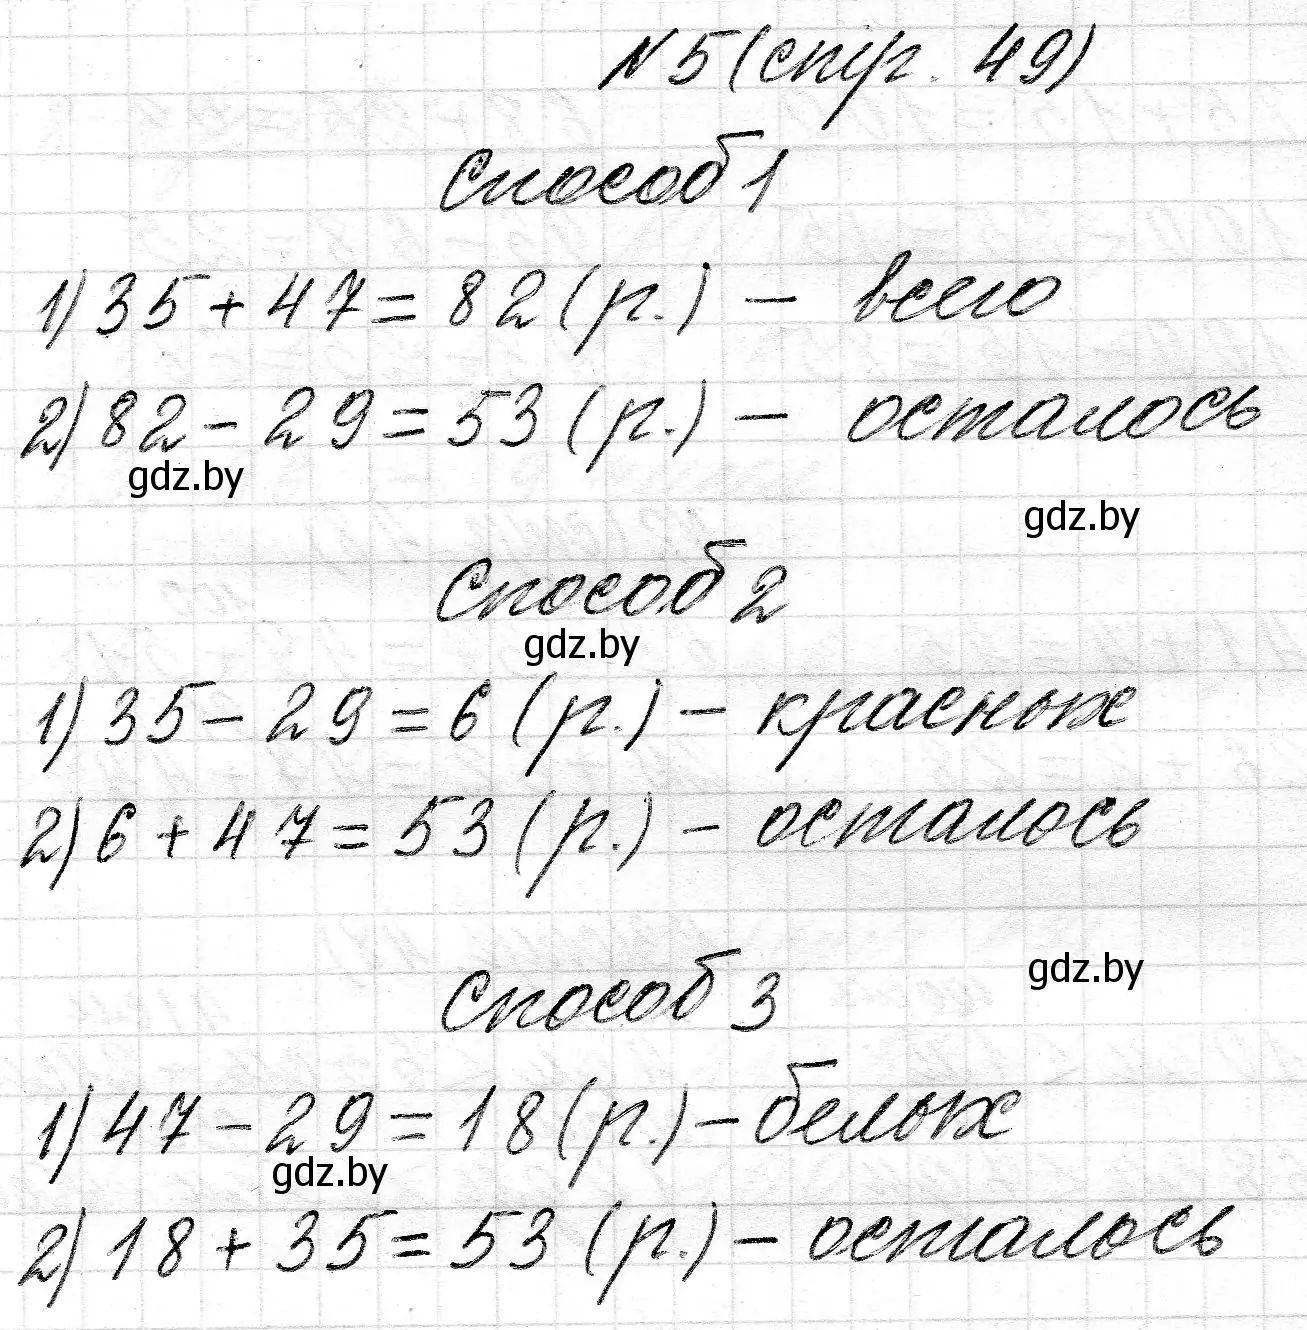 №5 (стр. 49)
Способ 1
1) 35 + 47 = 82 (р.) – всего
2) 82 - 29 = 53 (р.) – осталось
gdz.by
gdz.by
Способ 2
gdz.by
1) 35 - 29 = 6 (р.) – красных
2) 6 + 47 = 53 (р.) – осталось
gdz.by
Способ 3
1) 47 - 29 = 18 (р.) – белых
gdz.by
2) 18 + 35 = 53 (р.) – осталось